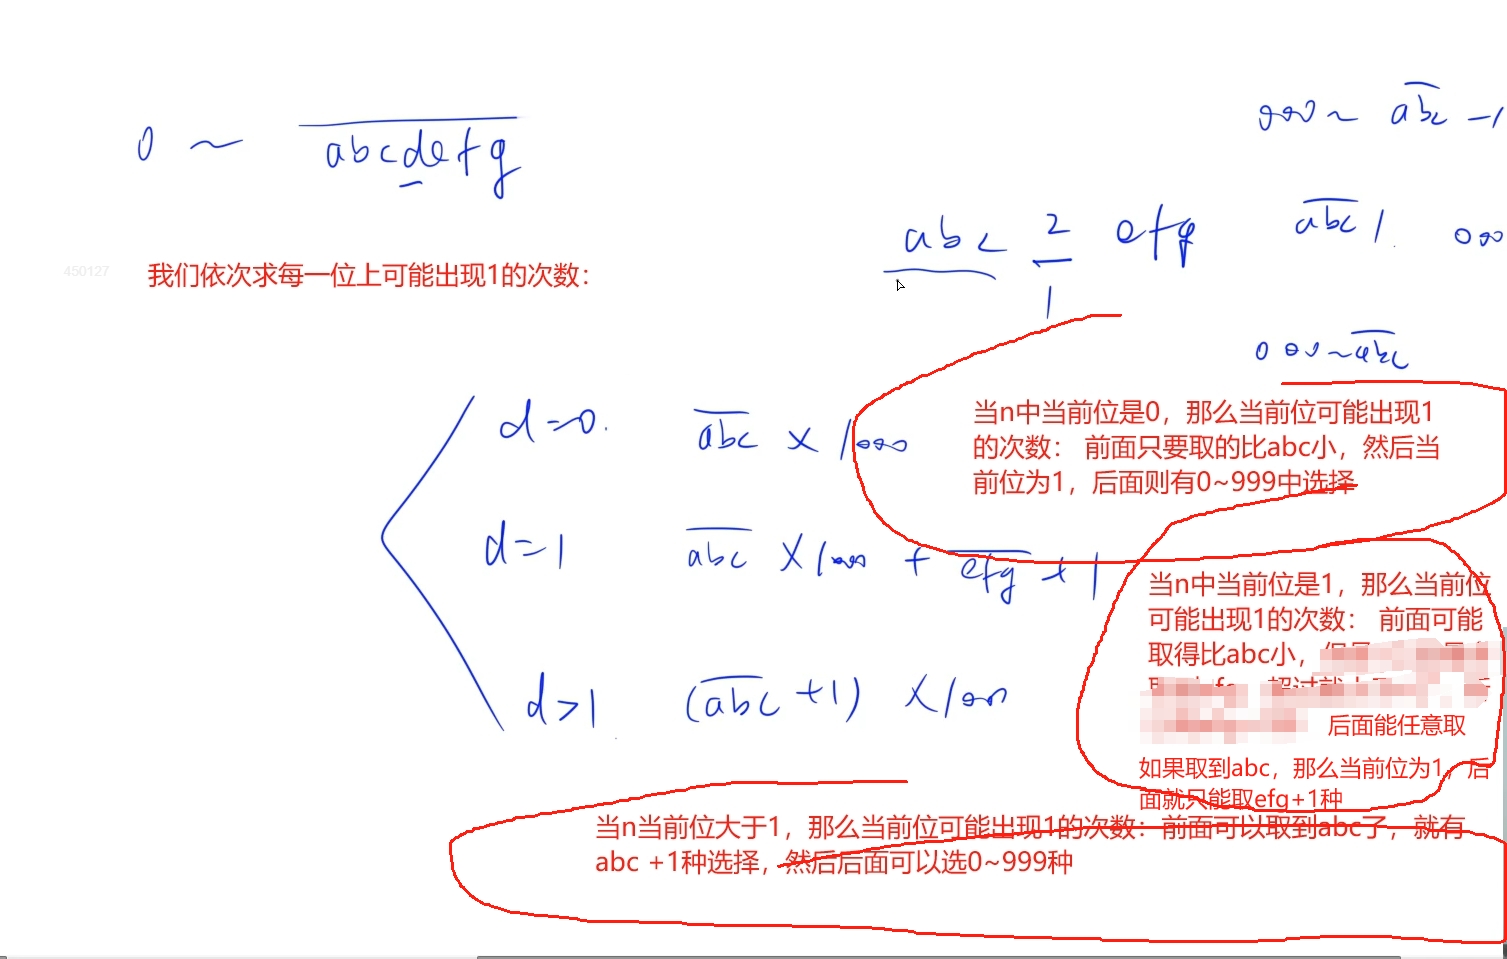 0 ~ abcdefg
000 ~ abc -1
abc 2 efg
1
abc 1 000
450127
我们依次求每一位上可能出现1的次数：
000~abc
d=0. abc × 1000
当n中当前位是0，那么当前位可能出现1
的次数： 前面只要取的比abc小，然后当
前位为1，后面则有0~999中选择
d=1 abc × 1000 + efg + 1
当n中当前位是1，那么当前位
可能出现1的次数： 前面可能
取得比abc小，
后面能任意取
如果取到abc，那么当前位为1，后
面就只能取efg+1种
d>1 (abc +1) ×1000
当n当前位大于1，那么当前位可能出现1的次数：前面可以取到abc了，就有
abc +1种选择，然后后面可以选0~999种